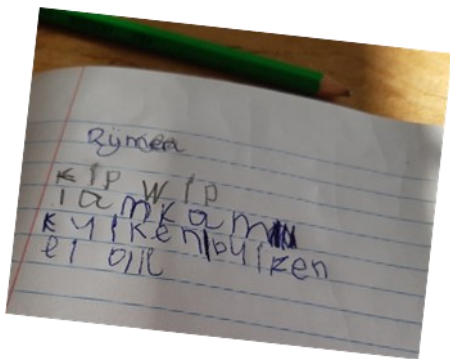 Rijmen
kip wip
lamkam
kyiken|pyiken
ei